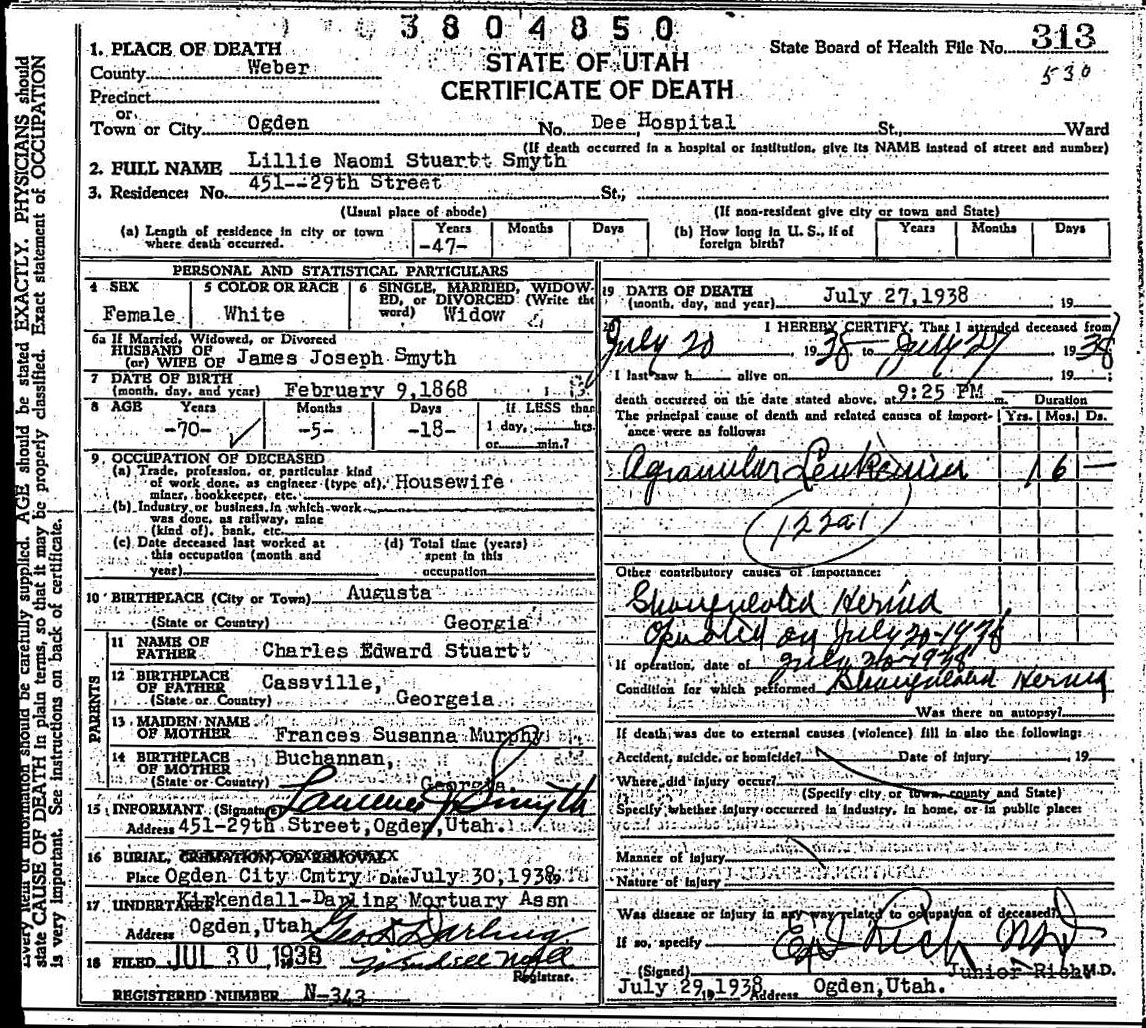 3804850
State Board of Health File No. 313
530
STATE OF UTAH
CERTIFICATE OF DEATH
1. PLACE OF DEATH
County Weber
Precinct
or
Town or City Ogden No. Dee Hospital St., Ward
(If death occurred in a hospital or institution, give its NAME instead of street and number)
2. FULL NAME Lillie Naomi Stuartt Smyth
3. Residence: No. 451--29th Street St.,
(Usual place of abode) (If non-resident give city or town and State)
(a) Length of residence in city or town where death occurred. Years -47- Months Days
(b) How long in U. S., if of foreign birth? Years Months Days
PERSONAL AND STATISTICAL PARTICULARS
4 SEX Female
5 COLOR OR RACE White
6 SINGLE, MARRIED, WIDOWED, or DIVORCED (Write the word) Widow
6a If Married, Widowed, or Divorced
HUSBAND OF
(or) WIFE OF James Joseph Smyth
7 DATE OF BIRTH
(month, day, and year) February 9,1868
8 AGE Years -70- Months -5- Days -18- If LESS than 1 day, hrs. or min.?
9. OCCUPATION OF DECEASED
(a) Trade, profession, or particular kind
of work done, as engineer (type of). Housewife
miner, bookkeeper, etc.
(b) Industry or business in which work
was done, as railway, mine
(kind of), bank, etc.
(c) Date deceased last worked at
this occupation (month and
year)
(d) Total time (years)
spent in this
occupation
10 BIRTHPLACE (City or Town) Augusta
(State or Country) Georgia
PARENTS
11 NAME OF
FATHER Charles Edward Stuartt
12 BIRTHPLACE
OF FATHER Cassville,
(State or Country) Georgeia
13 MAIDEN NAME
OF MOTHER Frances Susanna Murphy
14 BIRTHPLACE
OF MOTHER Buchannan,
(State or Country) Georgia.
15 INFORMANT (Signature) Lawrence J Smyth
Address 451-29th Street,Ogden,Utah.
16 BURIAL, CREMATION, OR REMOVAL
Place Ogden City Cmtry Date July 30,1938
17 UNDERTAKER Kirkendall-Darling Mortuary Assn
Address Ogden,Utah Geo D Darling
18 FILED JUL 30 1938
Registrar.
REGISTERED NUMBER N-343
19 DATE OF DEATH
(month, day, and year) July 27,1938 19
20 I HEREBY CERTIFY, That I attended deceased from
July 20 1938 to July 27 1938
I last saw h alive on , 19 ;
death occurred on the date stated above, at 9:25 PM m.
The principal cause of death and related causes of importance were as follows: Duration Yrs. Mos. Ds.
Agranular Leukemia 1 6 —
122a1
Other contributory causes of importance:
Strangulated Hernia
Operated on July 20-1938
If operation, date of July 20-1938
Condition for which performed Strangulated Hernia
Was there an autopsy?
If death was due to external causes (violence) fill in also the following:
Accident, suicide, or homicide? Date of injury , 19
Where did injury occur?
(Specify city or town, county and State)
Specify whether injury occurred in industry, in home, or in public place:
Manner of injury
Nature of injury
Was disease or injury in any way related to occupation of deceased?
If so, specify
(Signed) Rich MD
Junior Rich M.D.
July 29, 1938 Address Ogden,Utah.
Every item of information should be carefully supplied. AGE should be stated EXACTLY. PHYSICIANS should
state CAUSE OF DEATH in plain terms, so that it may be properly classified. Exact statement of OCCUPATION
is very important. See instructions on back of certificate.